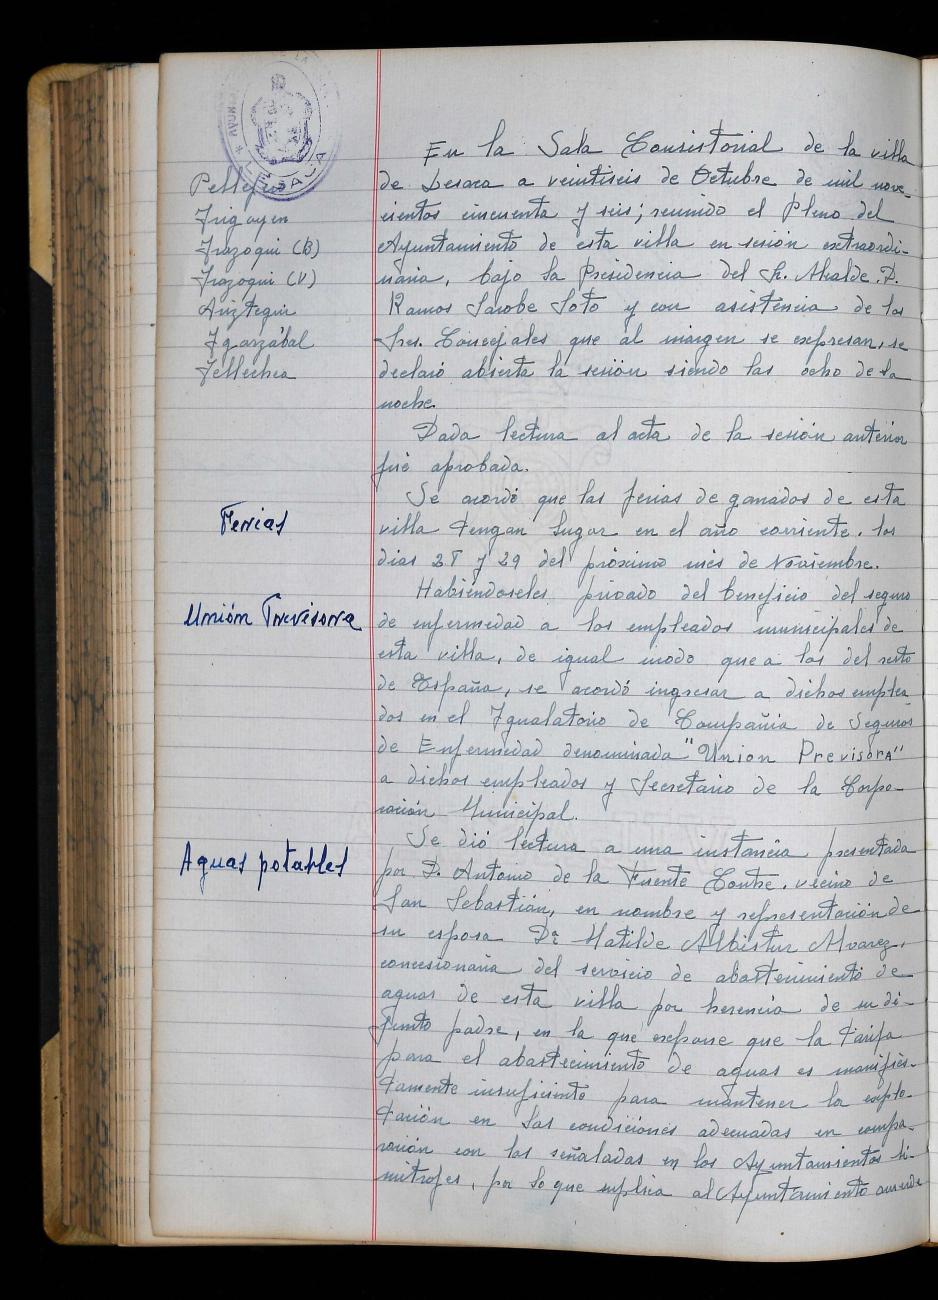 LESACA
Pellejero
Irigoyen
Irazoqui (B)
Irazoqui (V)
Ariztegui
Igarzábal
Tellechea
En la Sala Consistorial de la villa
de Lesaca a veintiseis de Octubre de mil nove-
cientos cincuenta y seis; reunido el Pleno del
Ayuntamiento de esta villa en sesión extraordi-
naria, bajo la Presidencia del Sr. Alcalde D.
Ramos Sarobe Soto y con asistencia de los
Sres. Concejales que al margen se expresan, se
declaró abierta la sesión siendo las ocho de la
noche.
Dada lectura al acta de la sesión anterior
fué aprobada.
Ferias
Se acordó que las ferias de ganados de esta
villa tengan lugar en el año corriente, los
dias 28 y 29 del próximo mes de Noviembre.
Unión Previsora
Habiéndoseles privado del beneficio del seguro
de enfermedad a los empleados municipales de
esta villa, de igual modo que a los del resto
de España, se acordó ingresar a dichos emplea
dos en el Igualatorio de Compañia de Seguros
de Enfermedad denominada "Union Previsora"
a dichos empleados y Secretario de la Corpo-
ración Municipal.
Aguas potables
Se dió lectura a una instancia presentada
por D. Antonio de la Fuente, vecino de
San Sebastián, en nombre y representación de
su esposa Dª Matilde Albistur Alvarez,
concesionaria del servicio de abastecimiento de
aguas de esta villa por herencia de su di-
funto padre, en la que expone que la tarifa
para el abastecimiento de aguas es manifies-
tamente insuficiente para mantener la explo-
tación en las condiciones adecuadas en compa-
ración con las señaladas en los Ayuntamientos li-
mitrofes, por lo que suplica al Ayuntamiento acuerde